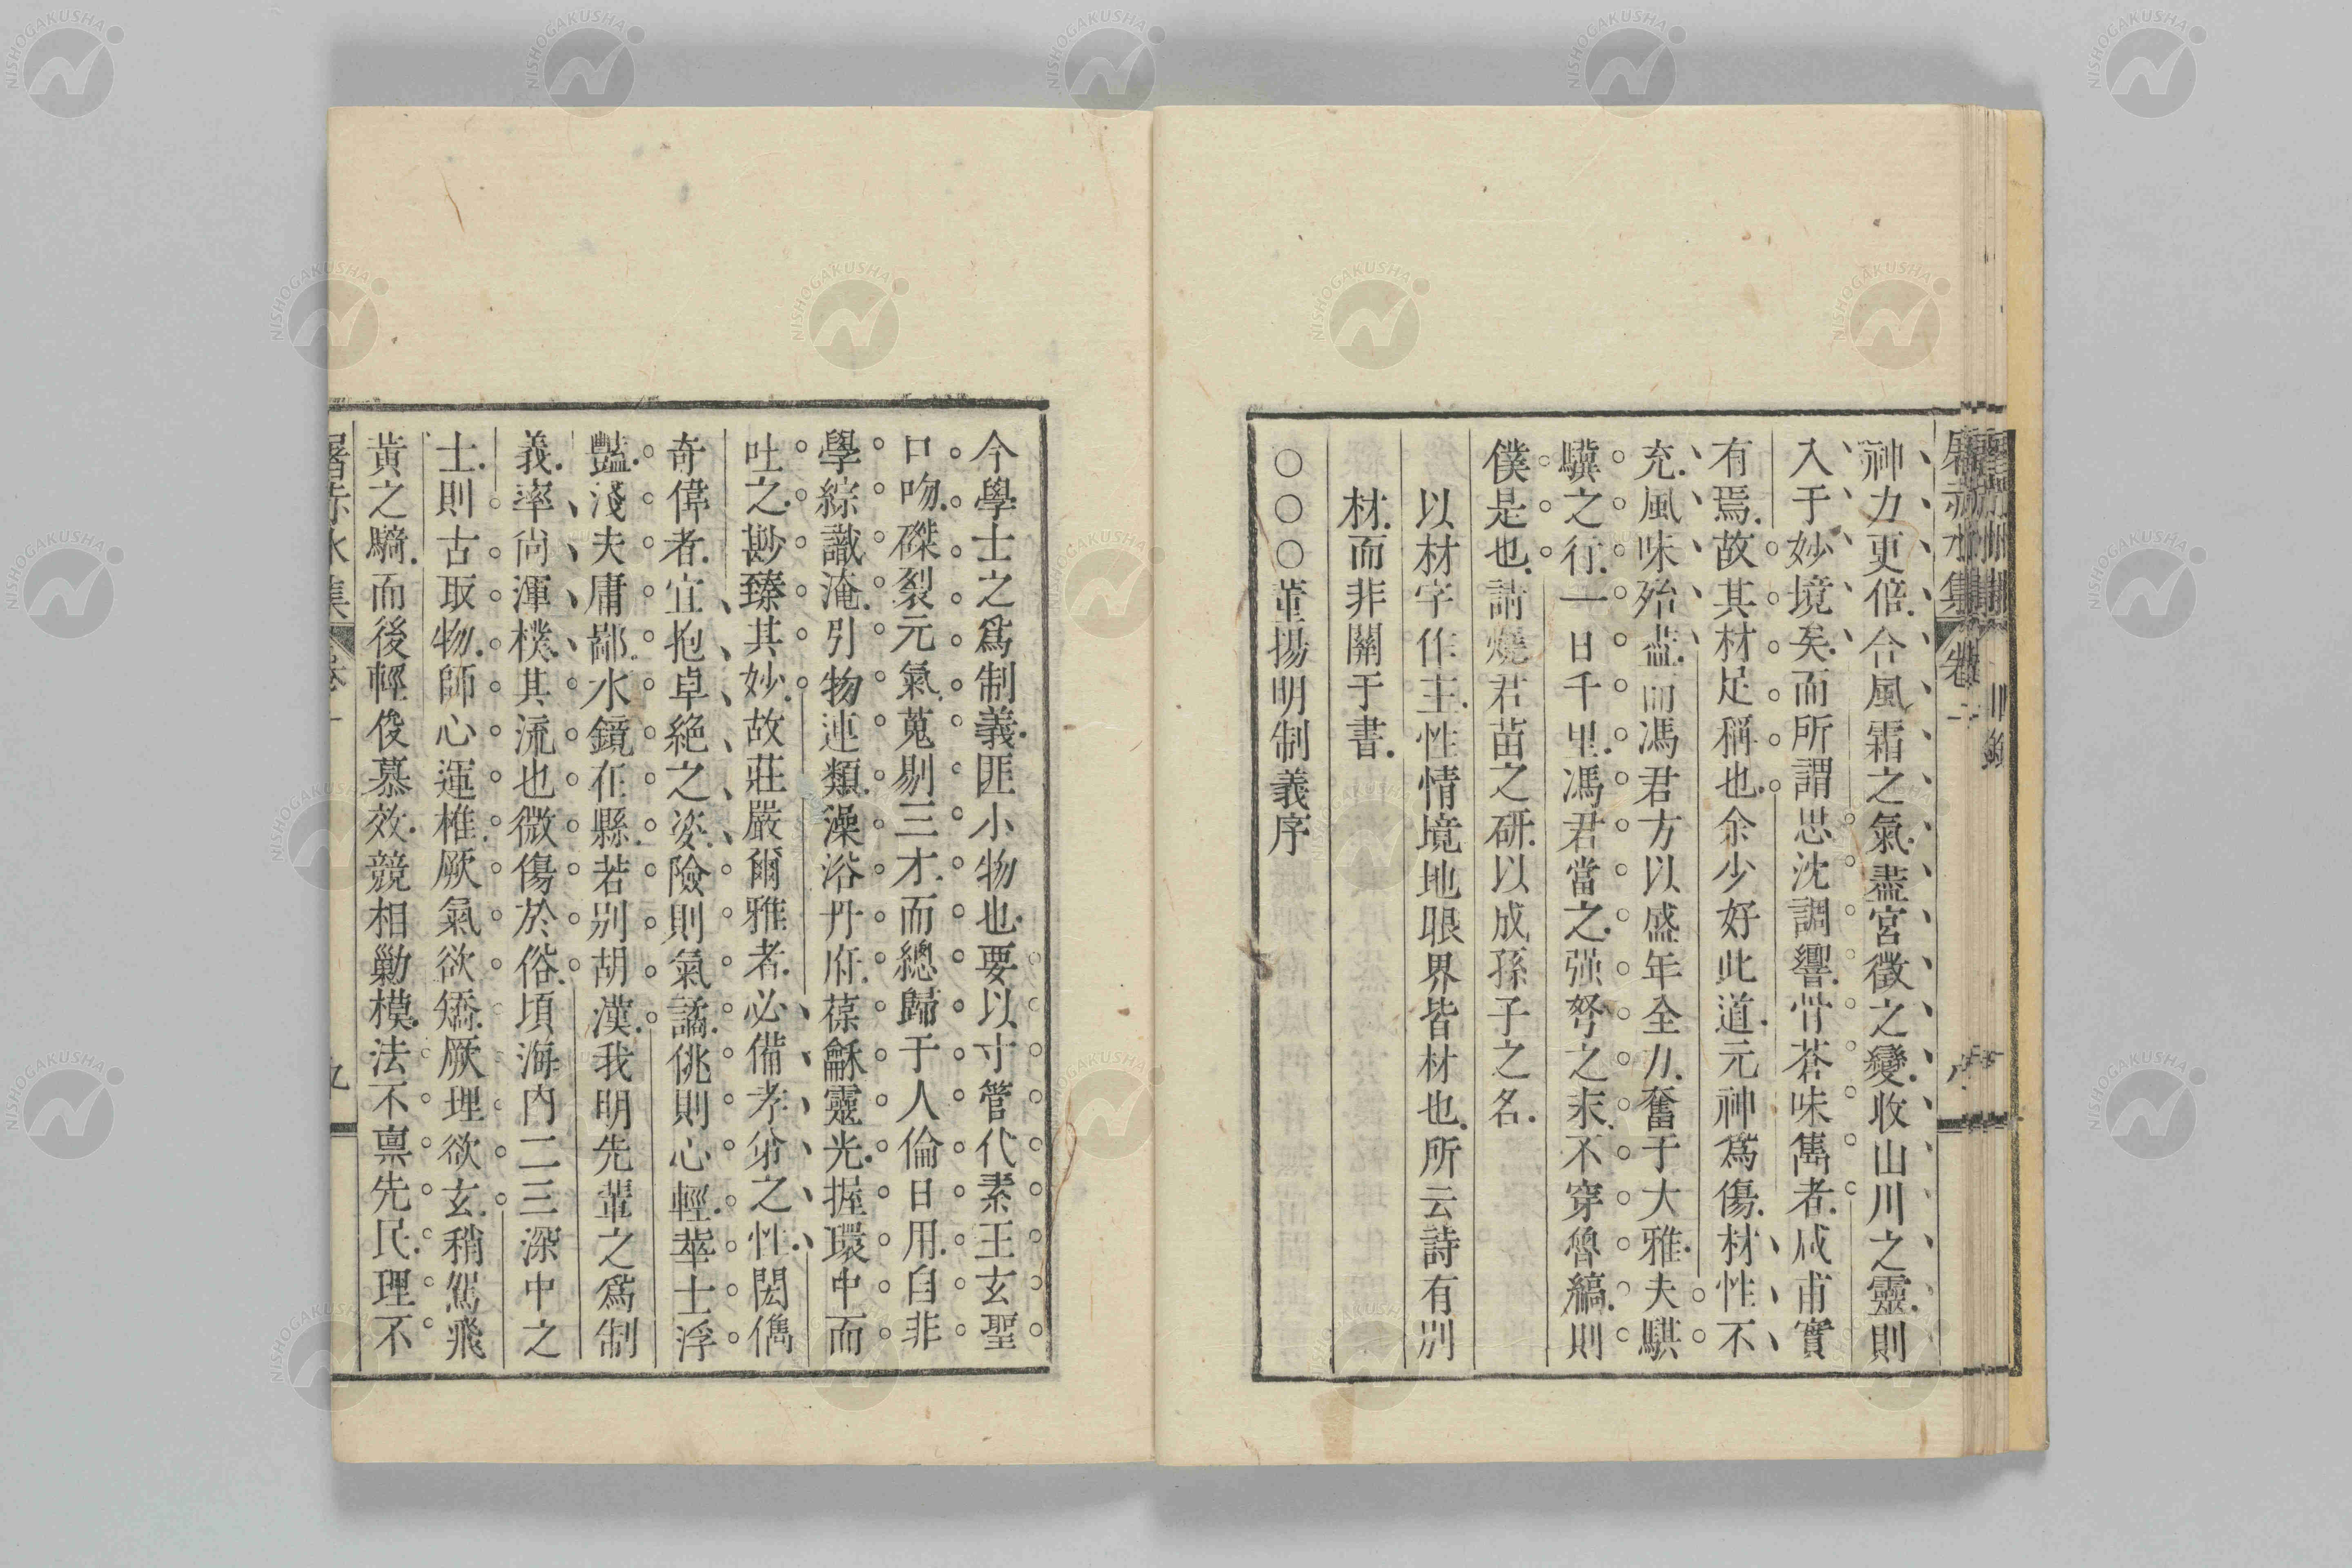 神力更倍合風霜之氣盡宮徵之變收山川之靈則
入于妙境矣而所謂思沈調響骨蒼味雋者咸甫實
有焉故其材足稱也余少好此道元神爲傷材性不
充風味殆盡而馮君方以盛年全力奮于大雅夫騏
驥之行一日千里馮君當之强弩之末不穿魯縞則
僕是也請燒君苗之研以成孫子之名
以材字作主性情境地眼界皆材也所云詩有別
材而非關于書
○○○董揚明制義序
今學士之爲制義匪小物也要以寸管代素王玄聖
口吻磔裂元氣蒐剔三才而總歸于人倫日用自非
學綜識淹引物連類澡浴丹府葆龢靈光握環中而
吐之尠臻其妙故莊嚴爾雅者必備孝弟之性閎儁
奇偉者宜抱卓絕之姿險則氣譎佻則心輕華士浮
豔淺夫庸鄙水鏡在縣若別胡漢我明先輩之爲制
義率尚渾樸其流也微傷於俗頃海內二三深中之
士則古取物師心運椎厥氣欲矯厥理欲玄稍駕飛
黃之驕而後輕俊慕效競相勦模法不稟先民理不
屠赤水集 卷 九
NISHOGAKUSHA